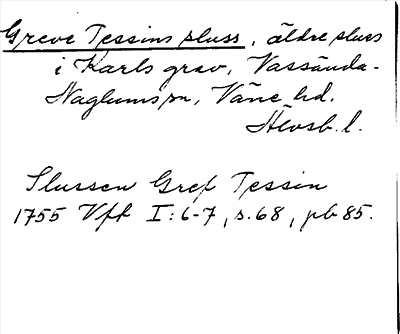 Greve Tessins sluss, äldre sluss
i Karls grav, Vassända-
Naglums sn, Väne hd.
Älvsb. l.
Slussen Gref Tessin
1755 Vft I:6-7, s.68, pb 85.